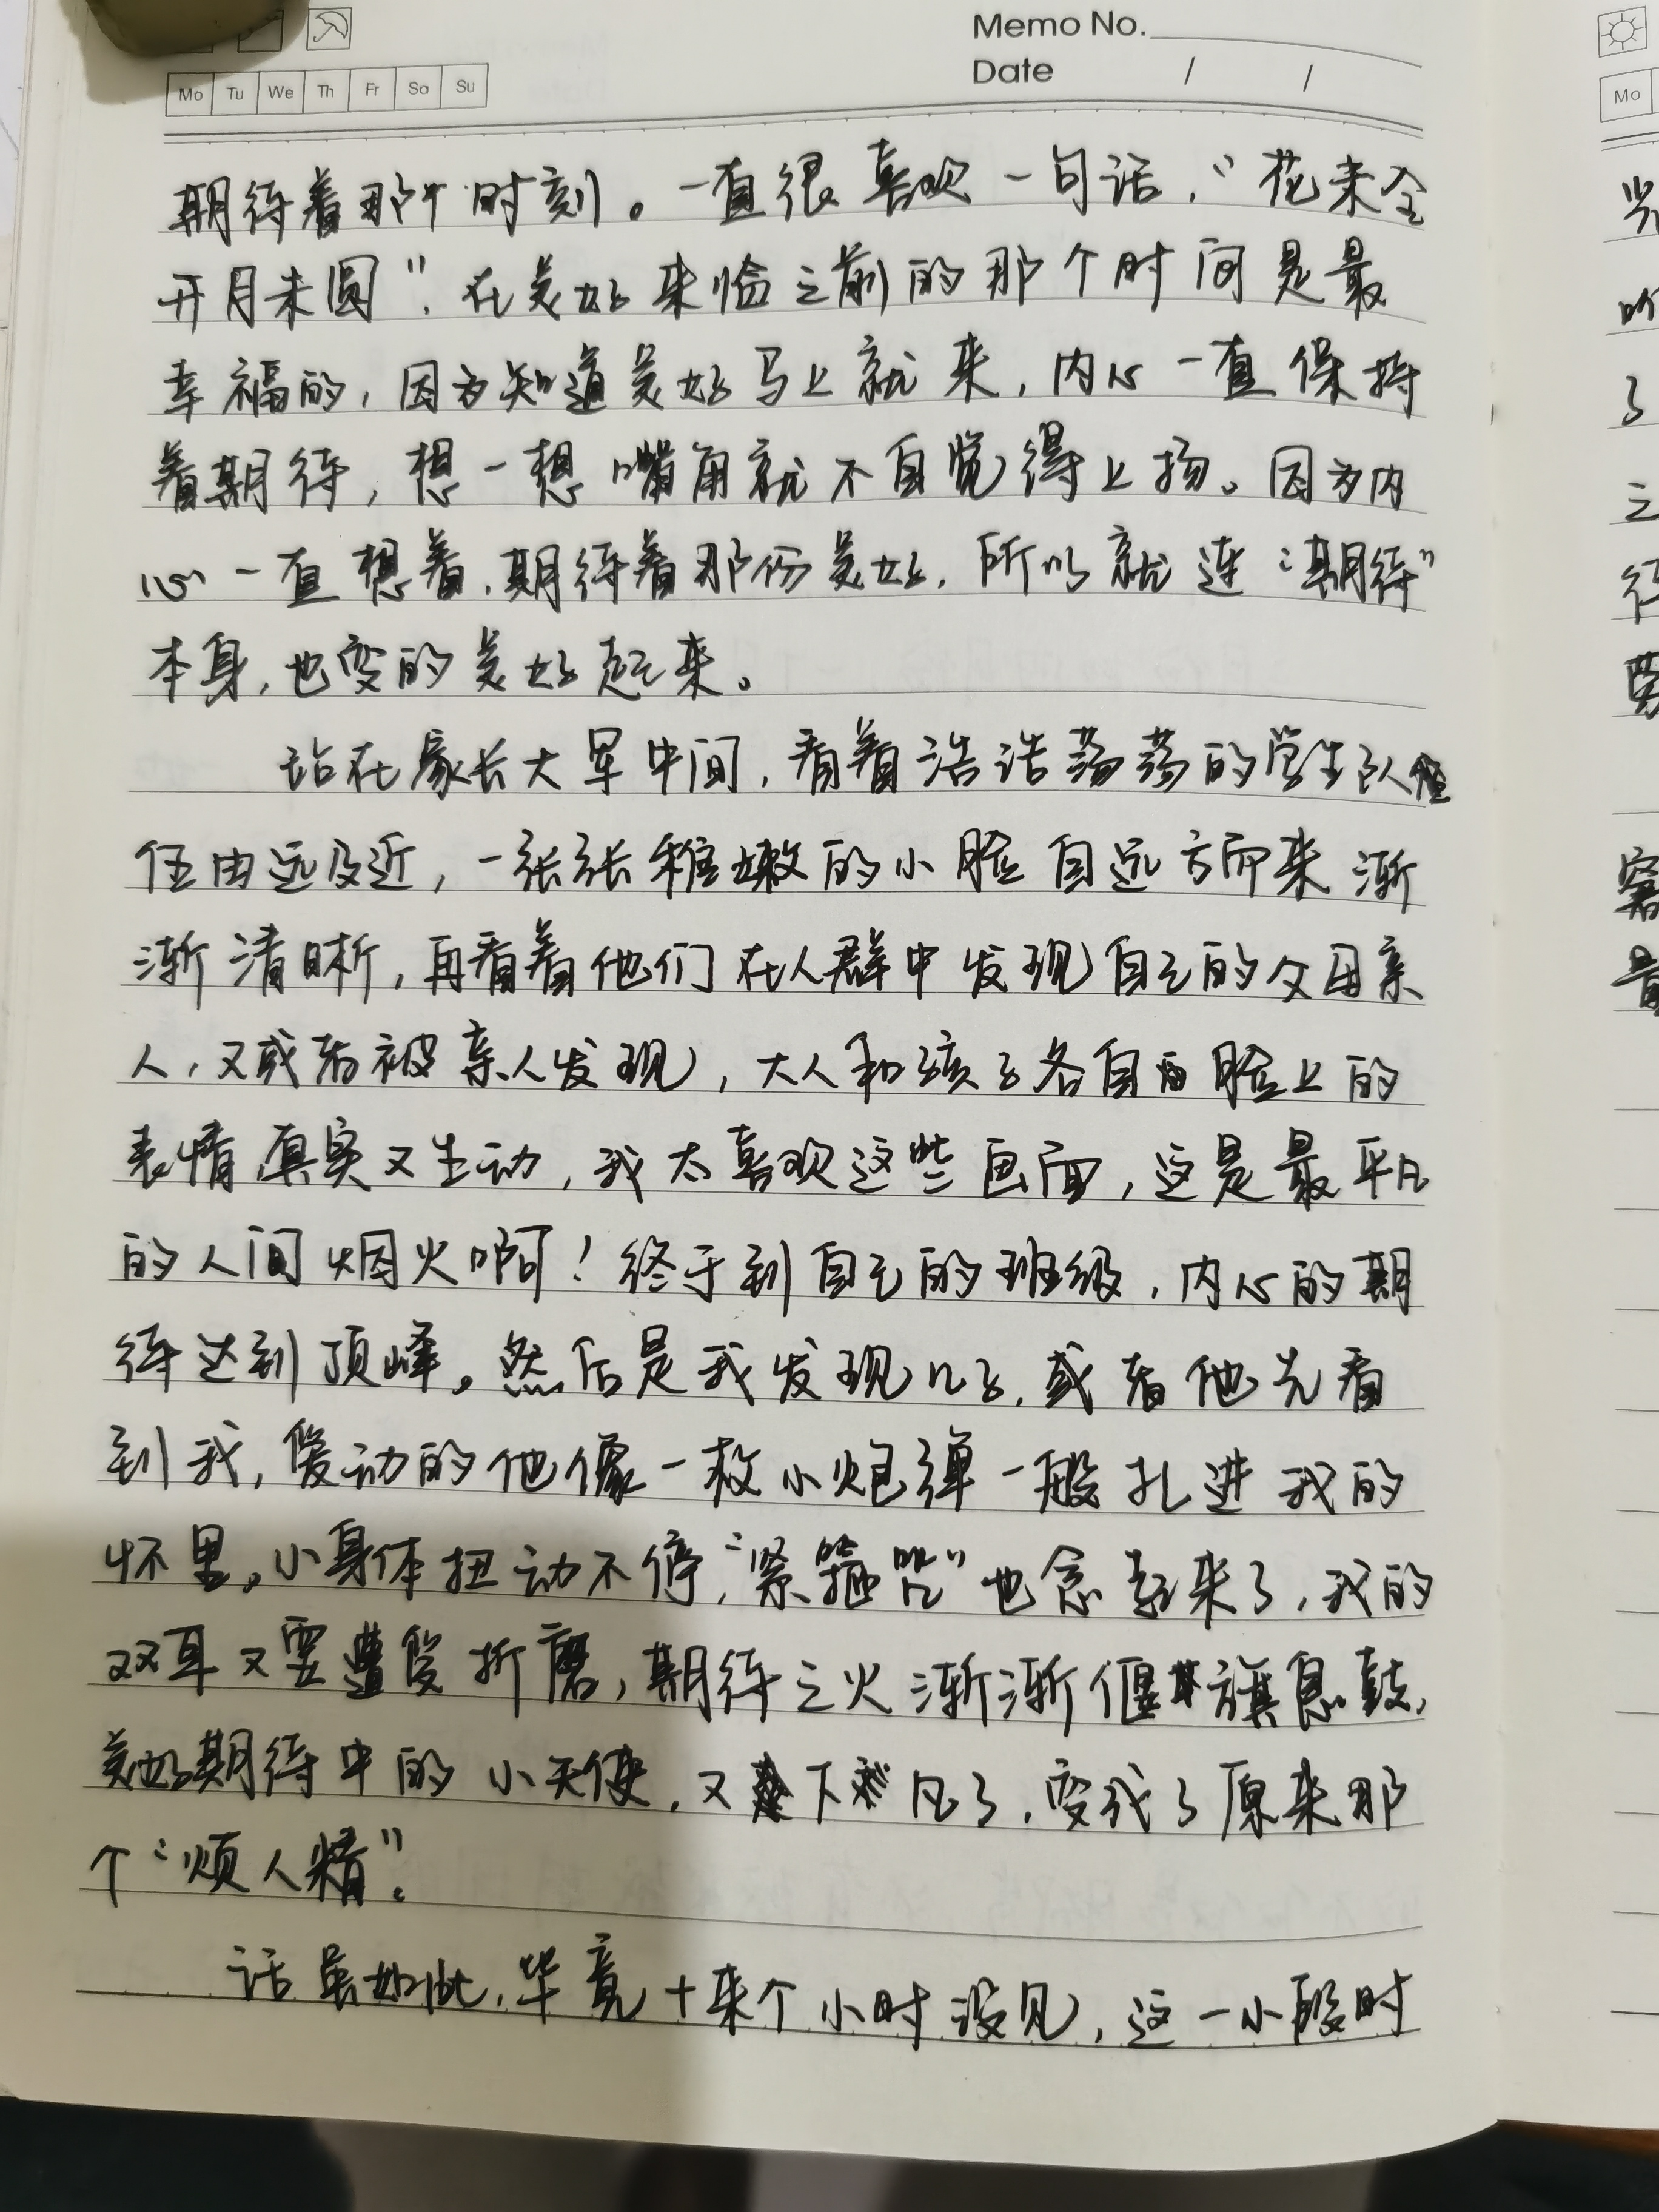 Memo No.
Date / /
Mo Tu We Th Fr Sa Su
Mo
期待着那个时刻。一直很喜欢一句话，“花未全
开月未圆”，在美好来临之前的那个时间是最
幸福的，因为知道美好马上就来，内心一直保持
着期待，想一想嘴角就不自觉得上扬。因为内
心一直想着，期待着那份美好，所以就连“期待”
本身，也变的美好起来。
站在家长大军中间，看着浩浩荡荡的学生队
伍由远及近，一张张稚嫩的小脸自远方而来渐
渐清晰，再看着他们在人群中发现自己的父母亲
人，又或者被亲人发现，大人和孩子各自脸上的
表情真实又生动，我太喜欢这些画面，这是最平凡
的人间烟火啊！终于到自己的班级，内心的期
待达到顶峰。然后是我发现儿子，或者他先看
到我，爱动的他像一枚小炮弹一般扎进我的
怀里。小身体扭动不停，“紧箍咒”也念起来了，我的
双耳又要遭受折磨，期待之火渐渐偃旗息鼓，
美好期待中的小天使，又下凡了，变成了原来那
个“烦人精”。
话虽如此，毕竟十来个小时没见，这一小段时